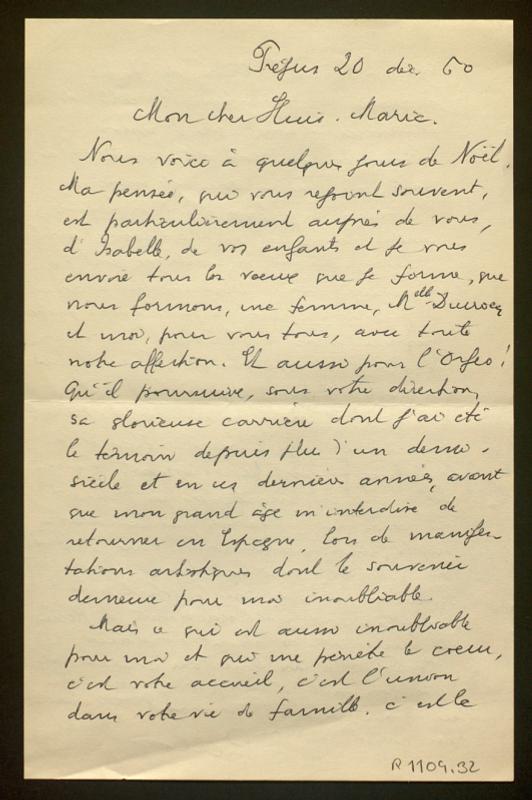 Fréjus 20 déc. 60
Mon cher Lluis-Maria.
Nous voici à quelques jours de Noël.
Ma pensée, qui vous rejoint souvent,
est particulièrement auprès de vous,
d'Isabelle, de vos enfants et je vous
envoie tous les vœux que je forme, que
nous formons, ma femme, Melle
et moi, pour vous tous, avec toute
notre affection. Et aussi pour l'Orfeo!
Qu'il poursuive, sous votre direction,
sa glorieuse carrière dont j'ai été
le témoin depuis plus d'un demi-
siècle et en ces dernières années, avant
que mon grand âge m'interdise de
retourner en Espagne, lors de manifes-
tations artistiques dont le souvenir
demeure pour moi inoubliable.
Mais ce qui est aussi inoubliable
pour moi et qui me pénètre le cœur,
c'est votre accueil, c'est l'union
dans votre vie de famille. c'est le
R 1109.32